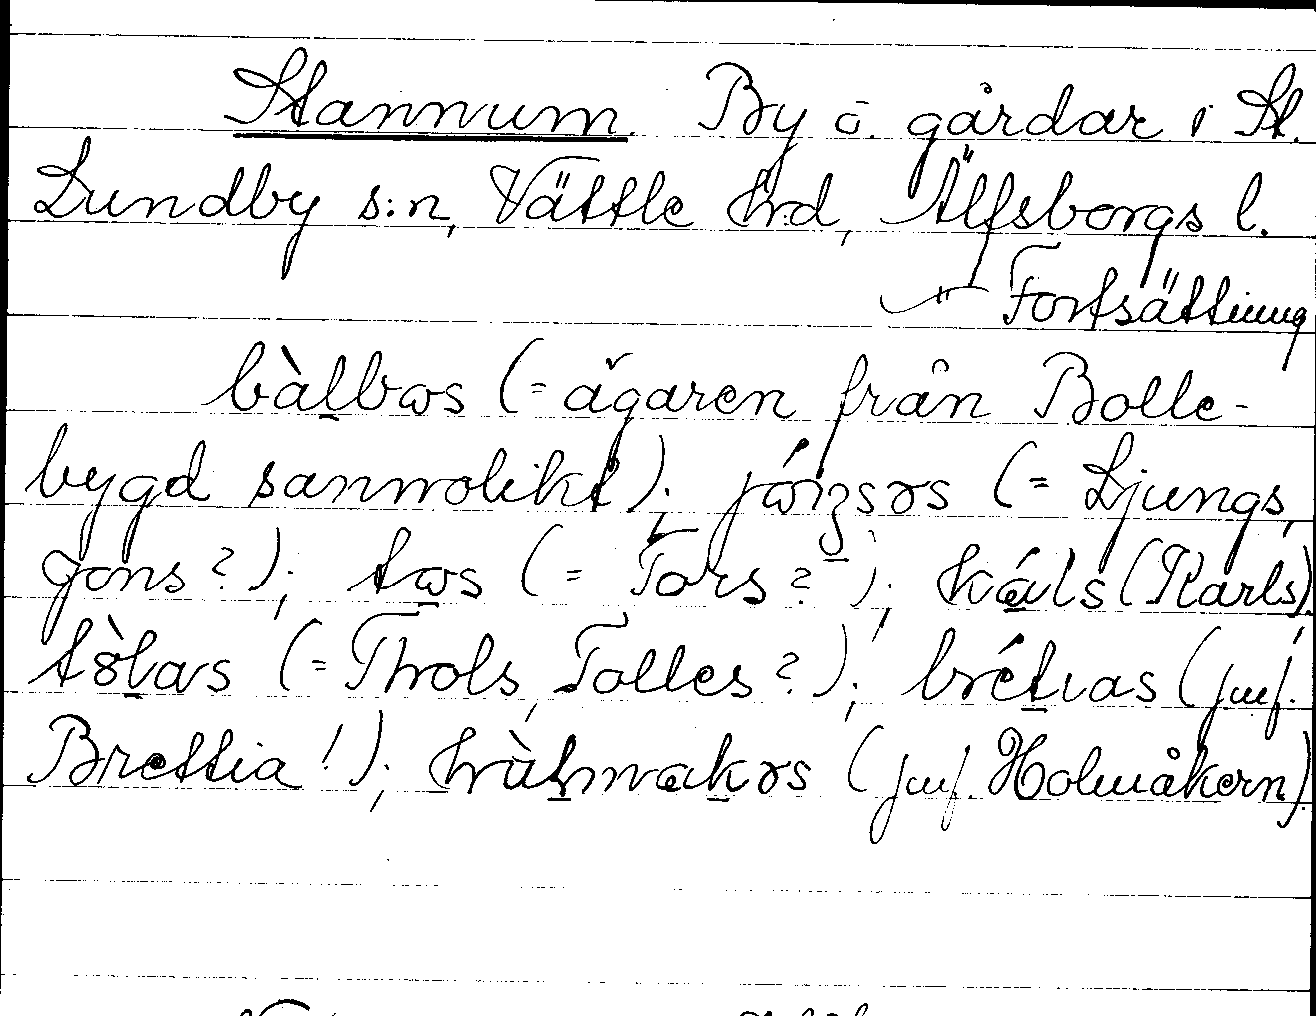 Stannum. By o. gårdar i St.
Lundby s:n, Vättle hrd, Älfsborgs l.
Fortsättning
bàlbos (= ägaren från Bolle-
bygd sannolikt); jóŋsɘs (= Ljungs,
Jons?); tos (= Tors?); káls (Karls)
tòlas (= Thols, Tolles?); brétias (jmf.
Brettia!); hùlmakɘs (jmf. Holmåkern)